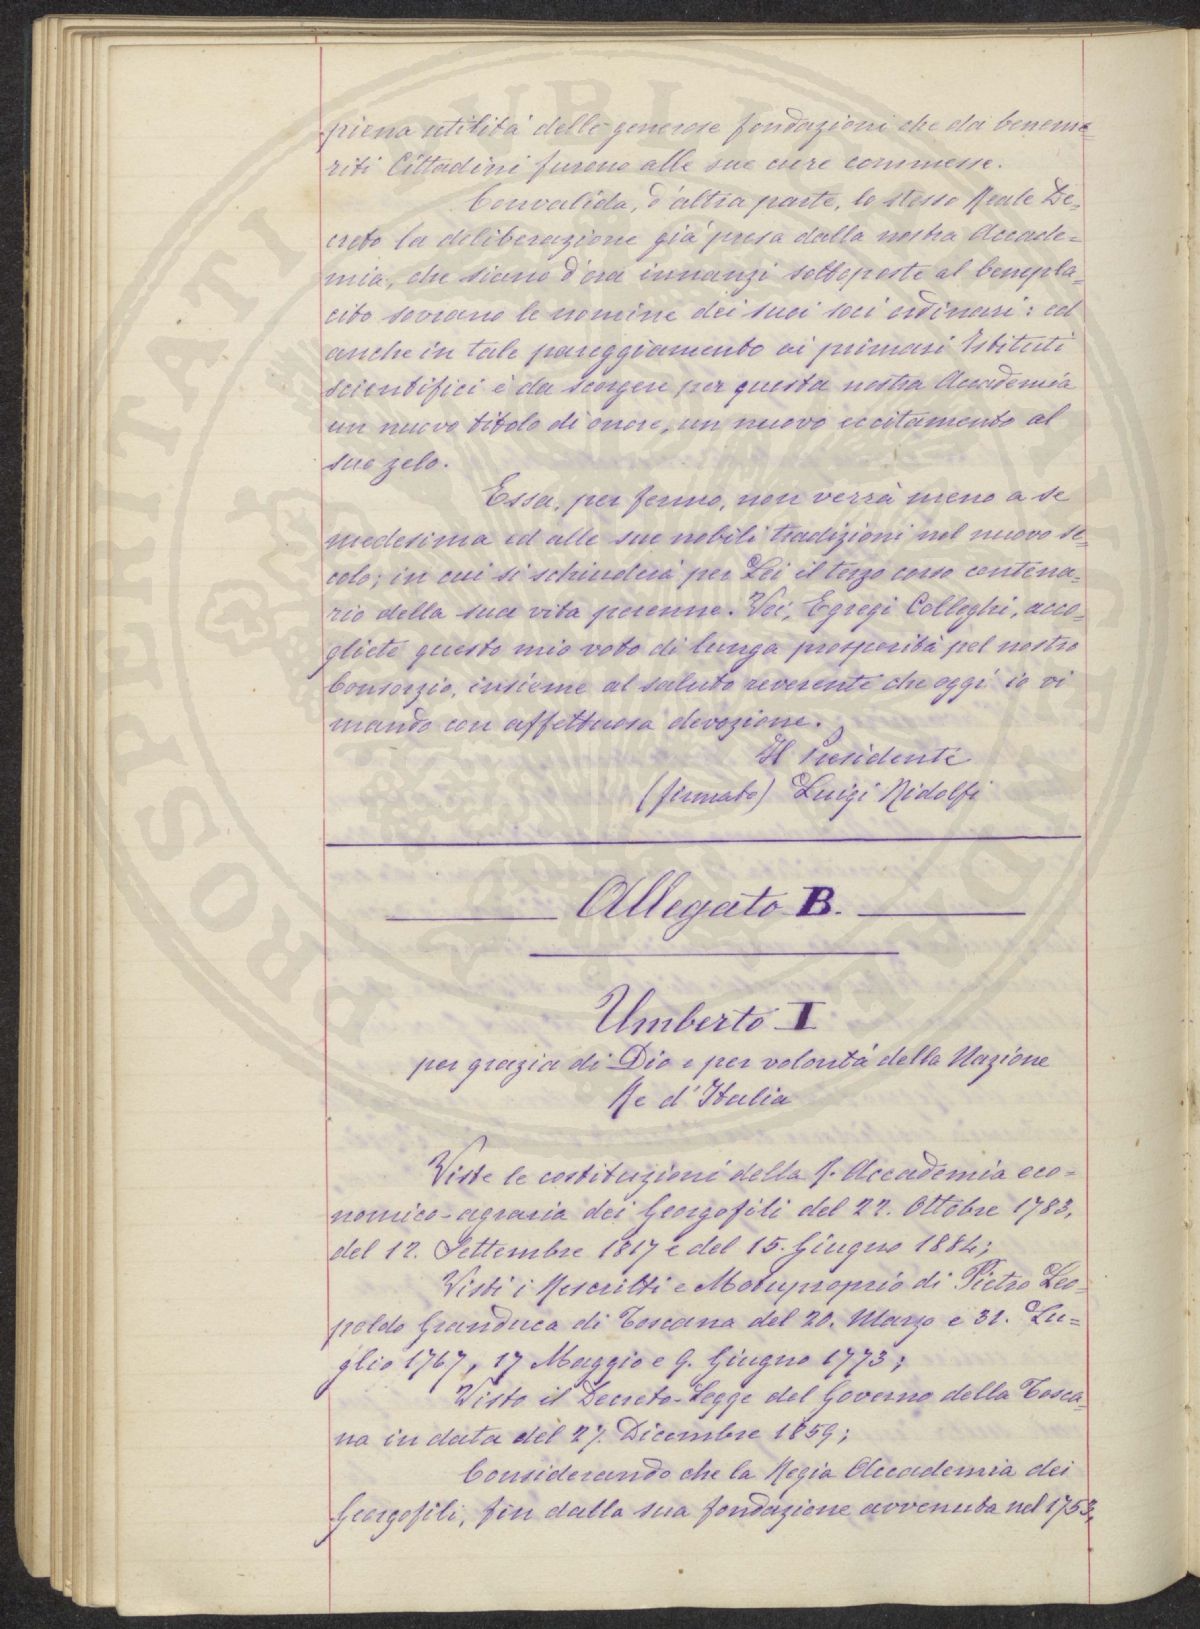 piena utilità delle generose fondazioni che da beneme=
riti Cittadini furono alle sue cure commesse.
Convalida, d'altra parte, lo stesso Reale De=
creto la deliberazione già presa dalla nostra Accade=
mia, che siano d'ora innanzi sottoposte al benepla=
cito sovrano le nomine dei suoi soci ordinari: ed
anche in tale pareggiamento ai primari Istituti
scientifici è da scorgere per questa nostra Accademia
un nuovo titolo di onore, un nuovo eccitamento al
suo zelo.
Essa, per fermo, non verrà meno a se
medesima ed alle sue nobili tradizioni nel nuovo se=
colo; in cui si schiuderà per Lei il terzo corso centena=
rio della sua vita perenne. Voi, Egregi Colleghi, acco=
gliete questo mio voto di lunga prosperità pel nostro
Consorzio, insieme al saluto reverente che oggi io vi
mando con affettuosa devozione.
Il Presidente
(firmato) Luigi Ridolfi
Allegato B.
Umberto I
per grazia di Dio e per volontà della Nazione
Re d'Italia
Viste le costituzioni della R. Accademia eco=
nomico-agraria dei Georgofili del 22. Ottobre 1783,
del 12. Settembre 1817 e del 15. Giugno 1884;
Visti i Rescritti e Motuproprio di Pietro Leo=
poldo Granduca di Toscana del 20. Marzo e 31. Lu=
glio 1767, 17 Maggio e 9. Giugno 1773;
Visto il Decreto-Legge del Governo della Tosca=
na in data del 27. Dicembre 1859;
Considerando che la Regia Accademia dei
Georgofili, fin dalla sua fondazione avvenuta nel 1753,
PROSPERITATI PUBLICAE AUGENDAE